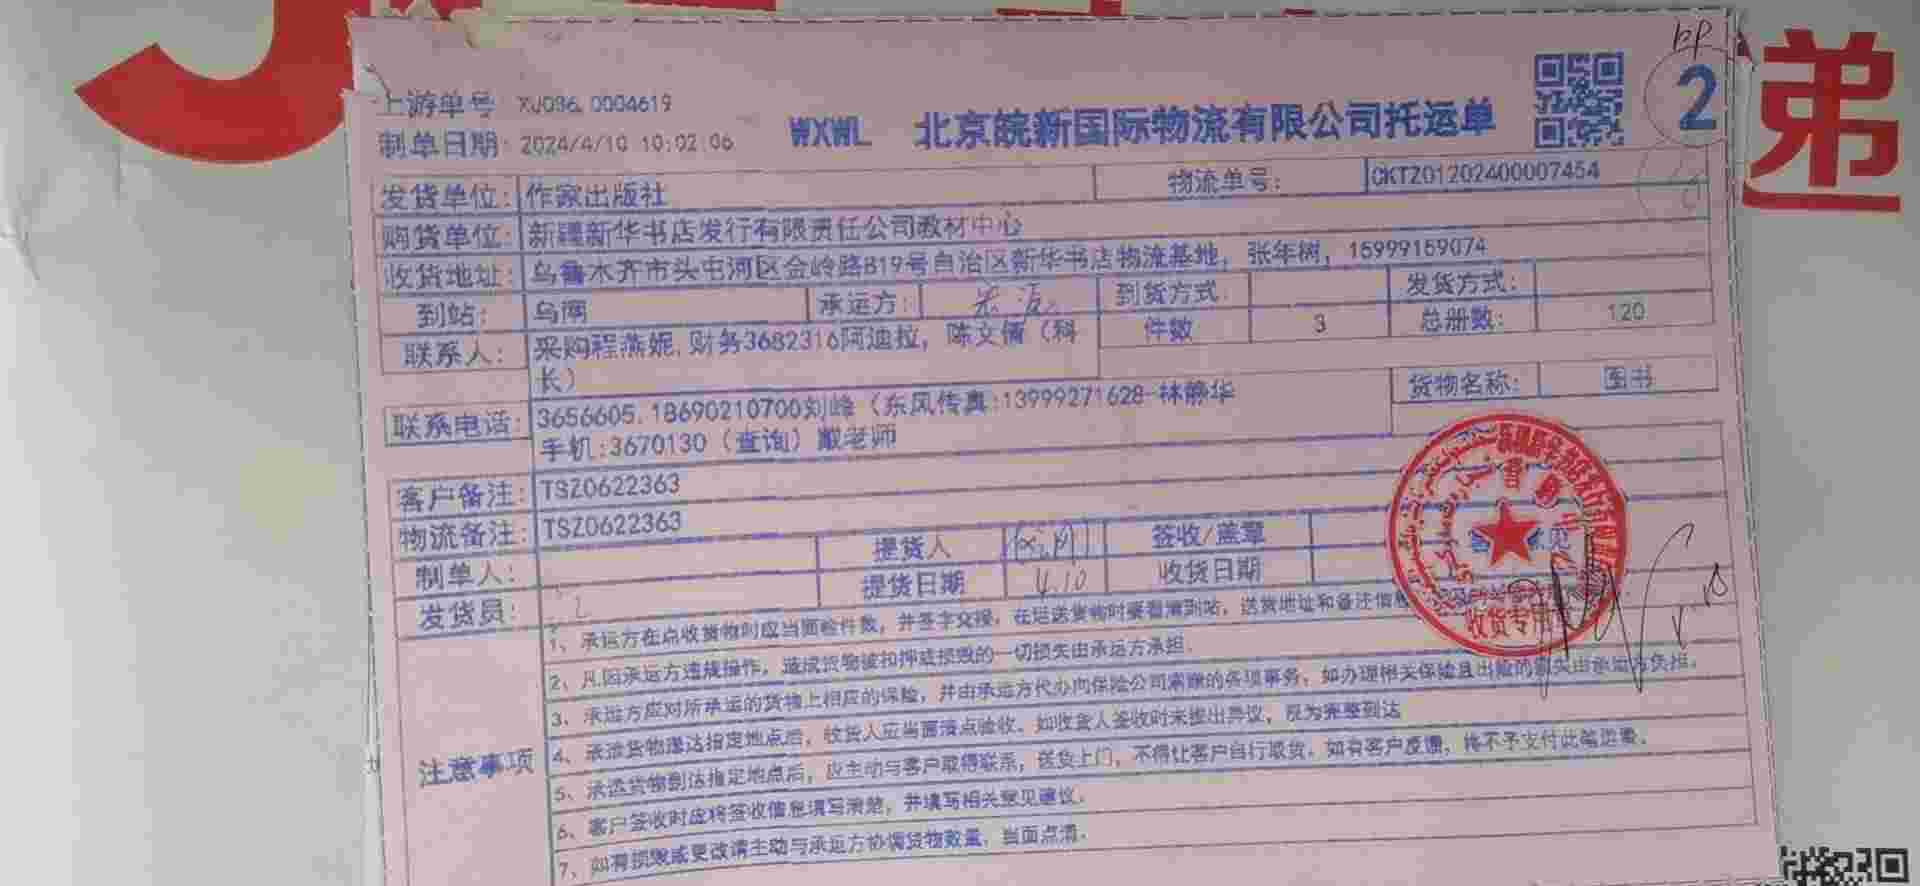 递
上游单号 XJ086.0004619
制单日期: 2024/4/10 10:02:06
WXWL 北京皖新国际物流有限公司托运单
2
发货单位: 作家出版社
物流单号: CKTZ01202400007454
购货单位: 新疆新华书店发行有限责任公司教材中心
收货地址: 乌鲁木齐市头屯河区金岭路819号自治区新华书店物流基地, 张年树, 15999159074
到站: 乌闸 承运方: 到货方式: 发货方式:
件数 3 总册数: 120
联系人: 采购程燕妮,财务3682316阿迪拉, 陈文倩 (科
长)
货物名称: 图书
联系电话: 3656605,18690210700刘峰 (东风传真:13999271628-林静华
手机:3670130 (查询) 戴老师
客户备注: TSZ0622363
物流备注: TSZ0622363
制单人: 提货人 签收/盖章
发货员: 提货日期 4.10 收货日期
收货专用章
注意事项
1、承运方在点收货物时应当面验件数, 并签字交接, 在运送货物时要看清到站, 送货地址和备注信息
2、凡因承运方违规操作, 造成货物被扣押或损毁的一切损失由承运方承担.
3、承运方应对所承运的货物上相应的保险, 并由承运方代办向保险公司索赔的各项事务, 如办理相关保险且出险的损失由承运方负担.
4、承运货物运达指定地点后, 收货人应当面清点验收, 如收货人签收时未提出异议, 视为完整到达
5、承运货物到达指定地点后, 应主动与客户取得联系, 送货上门, 不得让客户自行取货, 如有客户反馈, 将不予支付此笔运费.
6、客户签收时应将签收信息填写清楚, 并填写相关意见建议.
7、如有损毁或更改请主动与承运方协调货物数量, 当面点清.